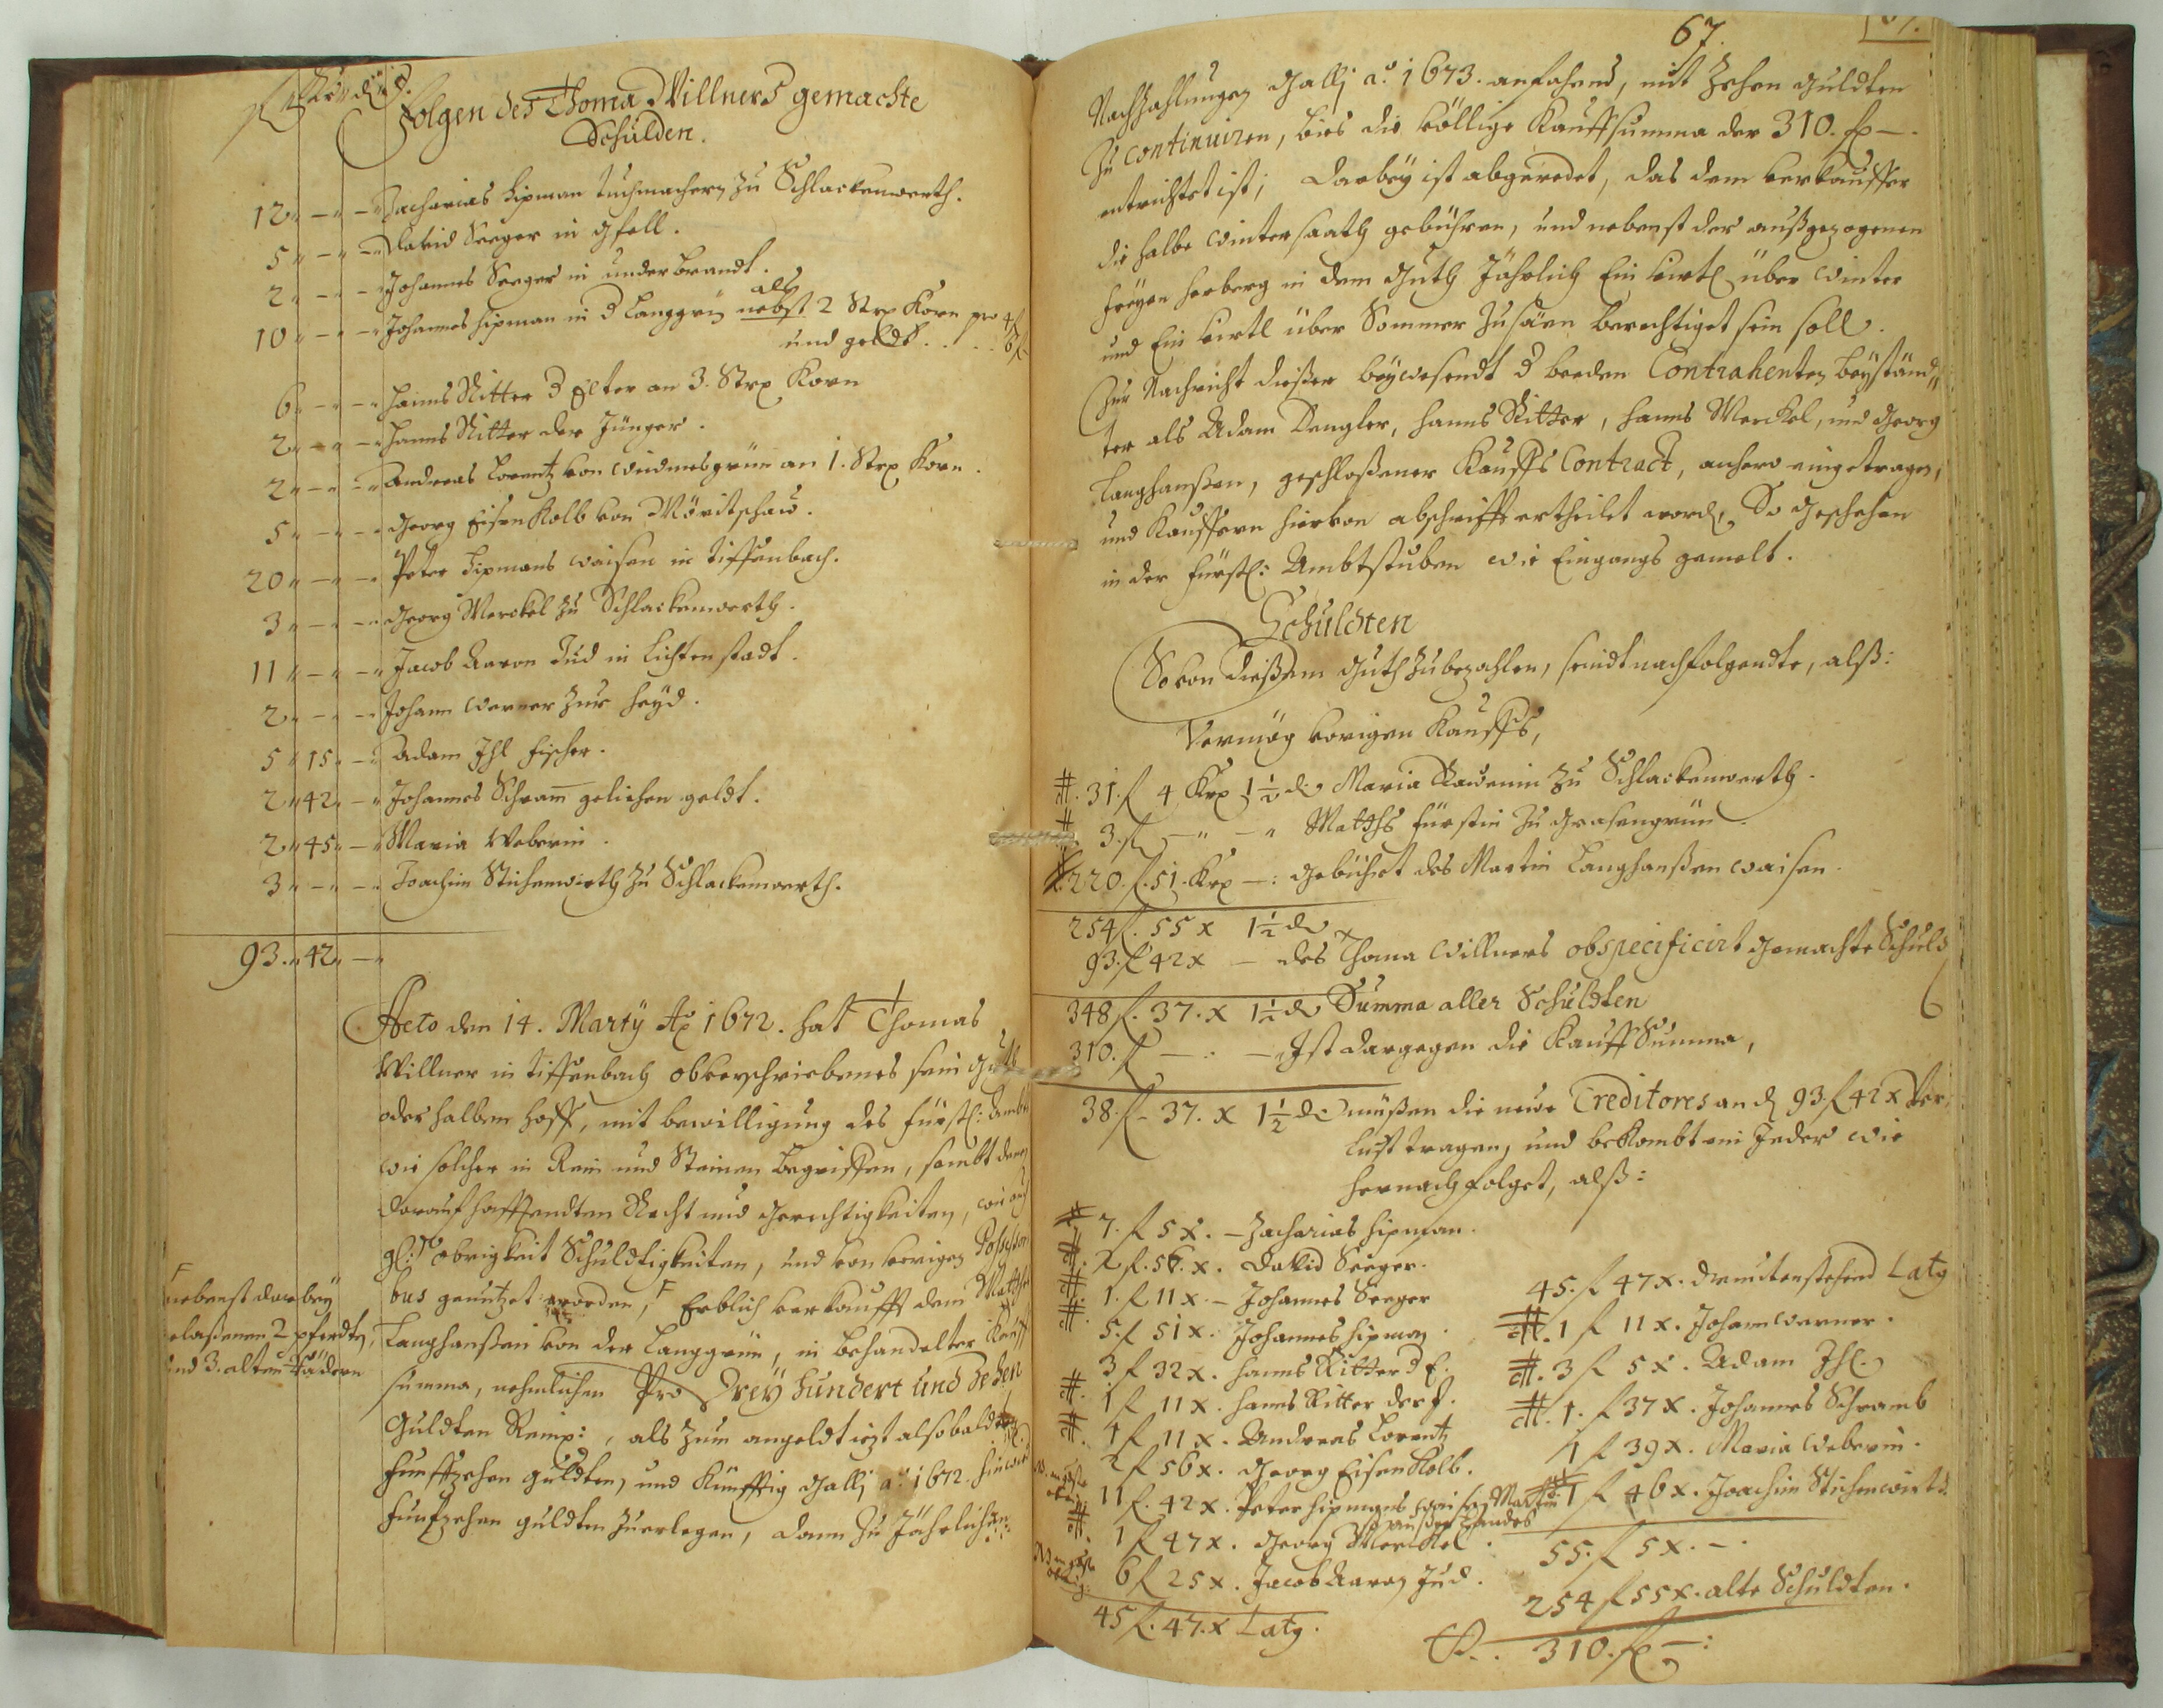 fl Kr: d
Folgen des Thoma Willners gemachte
Schulden.
12 " — " — " Zacharias Hipman tuchmachern zu Schlackenwerth.
5 " — " — " David Seeger in Gfell.
2 " — " — " Johannes Seeger in underbrandt.
als
10 " — " — " Johannes Hipman in d Langgrün nebst 2 Strx Korn pro 4 f
und geldt . . . . 6 f
6 " — " — " Hanns Ritter d Elter an 3. Strx Korn
2 " — " — " Hanns Ritter der Jünger.
2 " — " — " Andreas Lorentz von Weidmesgrün an 1. Strx Korn.
5 " — " — " Georg Eisenkolb von Möritschau.
20 " — " — " Peter Hipmans waisen in Tiffenbach.
3 " — " — " Georg Merckel zu Schlackenwerth.
11 " — " — " Jacob Aaron Jud in Lichtenstadt.
2 " — " — " Johann Werner zur Heyd.
5 " 15 " — " Adam Ihl Fischer.
2 " 42 " — " Johannes Schram gelichen geldt.
2 " 45 " — " Maria Weberin.
3 " — " — " Joachim Stichenwirth zu Schlackenwerth.
93 " 42 " — "
Acto den 14. Marty Ao 1672. hat Thomas
Willner in Tiffenbach obverschriebenes sein Guth
oder halben Hoff, mit bewilligung des fürstl: Ambts
wie solcher in Rein und Steinen begriffen, sambt denen
darauf hafftendten Recht und Gerechtigkeiten, wie auch
gl: obrigkeit Schuldtigkeiten, und von vorigen Possessori
bus genutzet worden, F Erblich verkaufft dem Matthes
Langhanßen von der Langgrün, in behandelter Kauff
summa, nehmlichen Pro Drey Hundert und Zehen
Guldten Reinx: , als zum angeldt iezt alsobaldt
Funffzehen guldten, und künfftig Gallj ao 1672. hinwid
Funfzehen guldten zuerlegen, dann zu Jährlichen
F
nebenst darbey
elaßenen 2 pferdten,
und 3. alten Rädern
67.
Nachzahlungen Gallj ao 1673. anfahend, mit Zehen guldten
zu continuiren, bies die völlige Kauffsumma der 310. fl —.
entrichtet ist; Darbey ist abgeredet, das dem verkauffer
die halbe wintersaath gebühren, und nebenst der außgezogenen
freyen herberg in dem Guth Jährlich Ein viertl über winter
und Ein viertl über Sommer zusäen berechtiget sein soll.
Zur Nachricht dießer beywesendt d beeden Contrahenten beyständ
ter als Adam Dengler, Hanns Ritter, Hanns Merckel, und Georg
Langhanßen, geschloßener Kauffs Contract, anhero eingetragen,
und Kauffern hiervon abschrifft ertheilet word, So geschehen
in der fürstl: Ambtstuben wie Eingangs gemelt.
Schuldten
So von dießem Guth zubezahlen, seindt nachfolgendte, alß:
Vermög vorigen Kauffs,
#. 31. fl 4 Krx 1½ d Maria zu Schlackenwerth.
# 3. fl — " — " Matths Fürstin zu Grasengrün
#. 220. fl. 51. Krx —: gebührt des Martin Langhanßen waisen.
254 fl. 55 x 1½ d
93. fl 42 x — des Thoma Willners obspecificirt gemachte Schuld
348 fl. 37. x 1½ d Summa aller Schuldten
310. fl — . — Ist dargegen die Kauff Summa,
38. fl – 37. x 1½ d müßen die neue Creditores an d 93. fl 42 x Ver
lust tragen, und bekombt ein Jeder wie
hernach folget, alß:
# 7. fl 5 x. — Zacharias Hipman.
#. 2 fl. 56. x. David Seeger.
#. 1. fl 11 x. — Johannes Seeger
#. 5. fl 51 x. Johannes Hipman.
3 fl 32 x. Hanns Ritter d E.
#. 1 fl 11 x. Hanns Ritter der J.
#. 1 fl 11 x. Andreas Lorentz
2 fl 56 x. Georg Eisenkolb.
11 fl. 42 x. Peter Hipmans waisen Martin
so außer Landes
#. 1 fl 47 x. Georg Merckel.
6 fl 25 x. Jacob Aaron Jud.
45 fl. 47. x Latg.
45. fl 47 x. druntenstehend Latg
#. 1 fl 11 x. Johann Werner.
#. 3 fl 5 x. Adam Ihl.
#. 1. fl 37 x. Johannes Schramb
1 fl 39 x. Maria Weberin.
# 1 fl 46 x. Joachim Stichenwirth.
55. fl 5 x. —.
254 fl 55 x. alte Schuldten.
S. . 310. fl —: